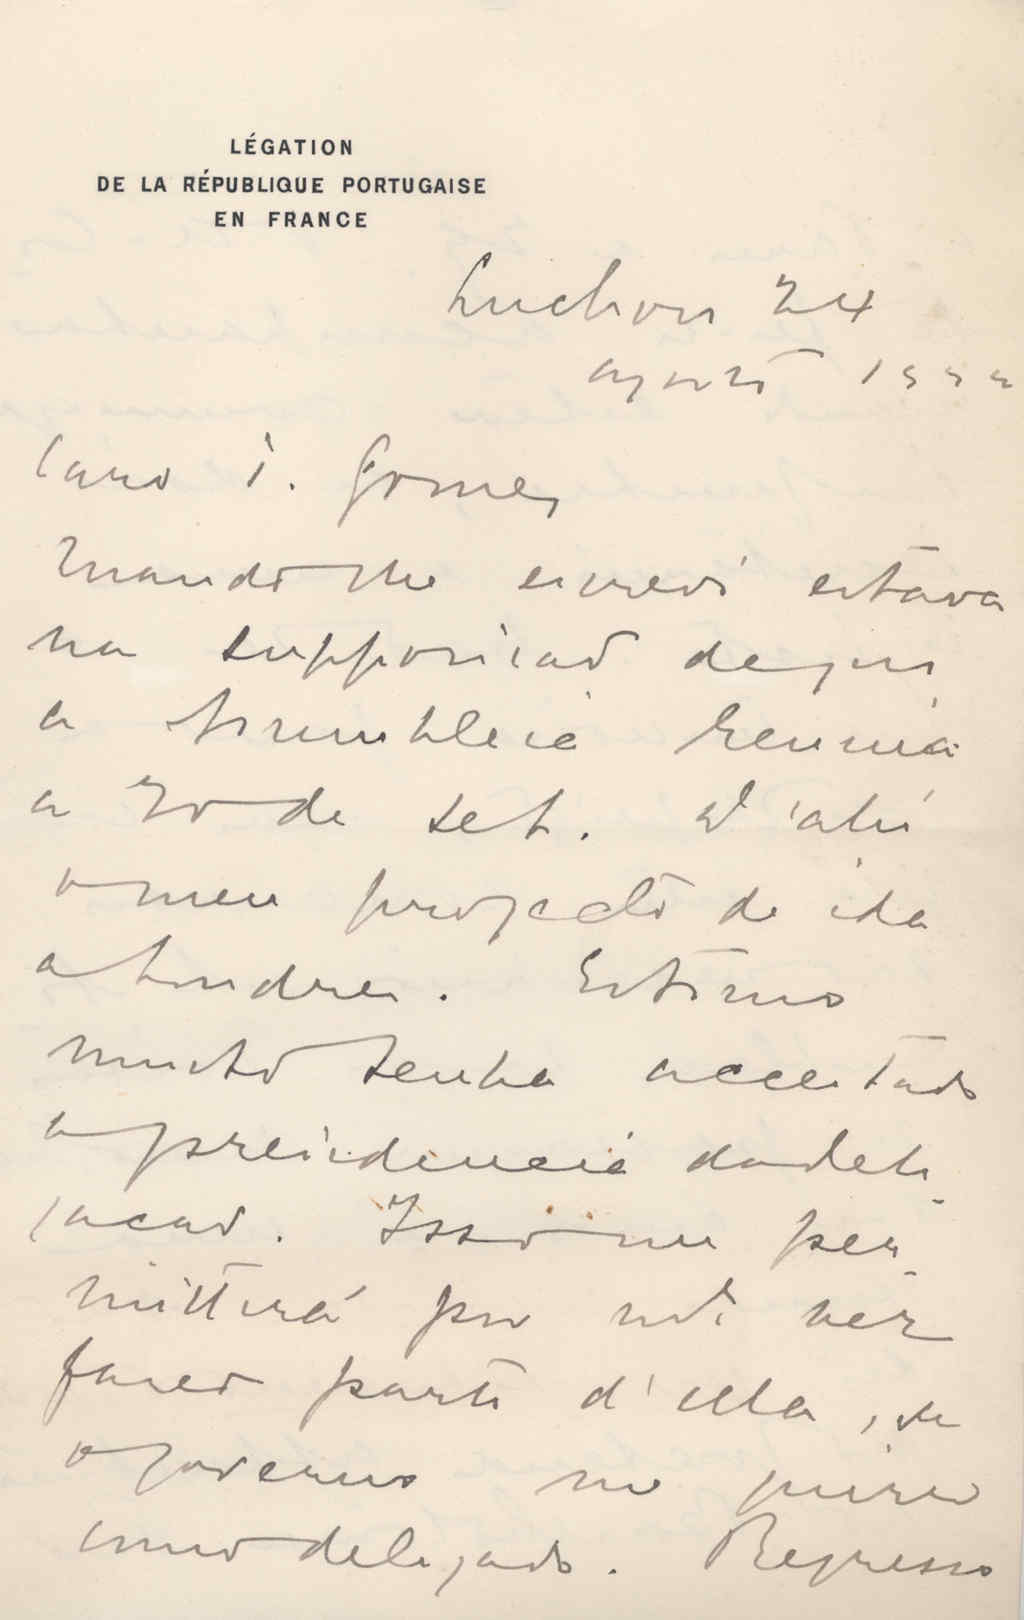 LÉGATION
DE LA RÉPUBLIQUE PORTUGAISE
EN FRANCE
Luchon 24
agosto 1922
Caro T. Gomes
Quando lhe escrevi estava
na supposição de que
a Assembleia reunia
a 20 de set. D'ahi
o meu projecto de ida
a Londres. Estimo
muito tenha acceitado
a presidencia da dele-
gacao. Isso me per-
mittirá por sua vez
fazer parte d'ella, se
o governo me quizer
como delegado. Regresso